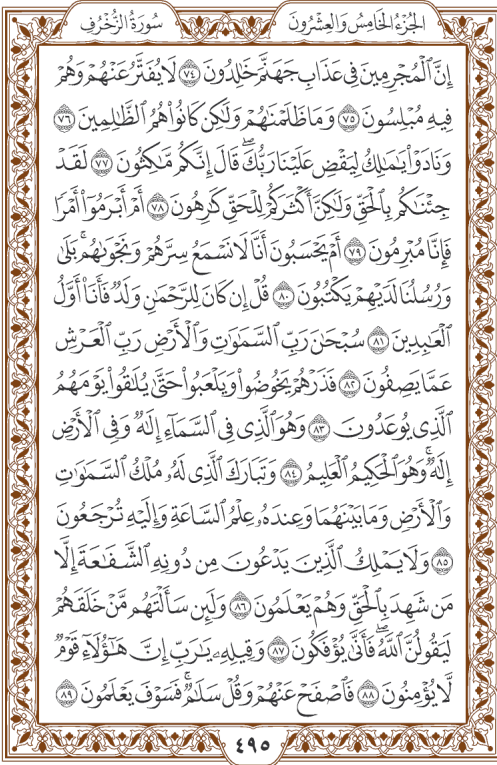 سُورَةُ الزُّخْرُفِ الجُزْءُ الخَامِسُ وَالعِشْرُونَ
إِنَّ ٱلْمُجْرِمِينَ فِى عَذَابِ جَهَنَّمَ خَٰلِدُونَ ٧٤ لَا يُفَتَّرُ عَنْهُمْ وَهُمْ
فِيهِ مُبْلِسُونَ ٧٥ وَمَا ظَلَمْنَٰهُمْ وَلَٰكِن كَانُوا۟ هُمُ ٱلظَّٰلِمِينَ ٧٦
وَنَادَوْا۟ يَٰمَٰلِكُ لِيَقْضِ عَلَيْنَا رَبُّكَ ۖ قَالَ إِنَّكُم مَّٰكِثُونَ ٧٧ لَقَدْ
جِئْنَٰكُم بِٱلْحَقِّ وَلَٰكِنَّ أَكْثَرَكُمْ لِلْحَقِّ كَٰرِهُونَ ٧٨ أَمْ أَبْرَمُوٓا۟ أَمْرًا
فَإِنَّا مُبْرِمُونَ ٧٩ أَمْ يَحْسَبُونَ أَنَّا لَا نَسْمَعُ سِرَّهُمْ وَنَجْوَىٰهُم ۚ بَلَىٰ
وَرُسُلُنَا لَدَيْهِمْ يَكْتُبُونَ ٨٠ قُلْ إِن كَانَ لِلرَّحْمَٰنِ وَلَدٌ فَأَنَا۠ أَوَّلُ
ٱلْعَٰبِدِينَ ٨١ سُبْحَٰنَ رَبِّ ٱلسَّمَٰوَٰتِ وَٱلْأَرْضِ رَبِّ ٱلْعَرْشِ
عَمَّا يَصِفُونَ ٨٢ فَذَرْهُمْ يَخُوضُوا۟ وَيَلْعَبُوا۟ حَتَّىٰ يُلَٰقُوا۟ يَوْمَهُمُ
ٱلَّذِى يُوعَدُونَ ٨٣ وَهُوَ ٱلَّذِى فِى ٱلسَّمَآءِ إِلَٰهٌ وَفِى ٱلْأَرْضِ
إِلَٰهٌ ۚ وَهُوَ ٱلْحَكِيمُ ٱلْعَلِيمُ ٨٤ وَتَبَارَكَ ٱلَّذِى لَهُۥ مُلْكُ ٱلسَّمَٰوَٰتِ
وَٱلْأَرْضِ وَمَا بَيْنَهُمَا وَعِندَهُۥ عِلْمُ ٱلسَّاعَةِ وَإِلَيْهِ تُرْجَعُونَ
٨٥ وَلَا يَمْلِكُ ٱلَّذِينَ يَدْعُونَ مِن دُونِهِ ٱلشَّفَٰعَةَ إِلَّا
مَن شَهِدَ بِٱلْحَقِّ وَهُمْ يَعْلَمُونَ ٨٦ وَلَئِن سَأَلْتَهُم مَّنْ خَلَقَهُمْ
لَيَقُولُنَّ ٱللَّهُ ۖ فَأَنَّىٰ يُؤْفَكُونَ ٨٧ وَقِيلِهِۦ يَٰرَبِّ إِنَّ هَٰٓؤُلَآءِ قَوْمٌ
لَّا يُؤْمِنُونَ ٨٨ فَٱصْفَحْ عَنْهُمْ وَقُلْ سَلَٰمٌ ۚ فَسَوْفَ يَعْلَمُونَ ٨٩
٤٩٥